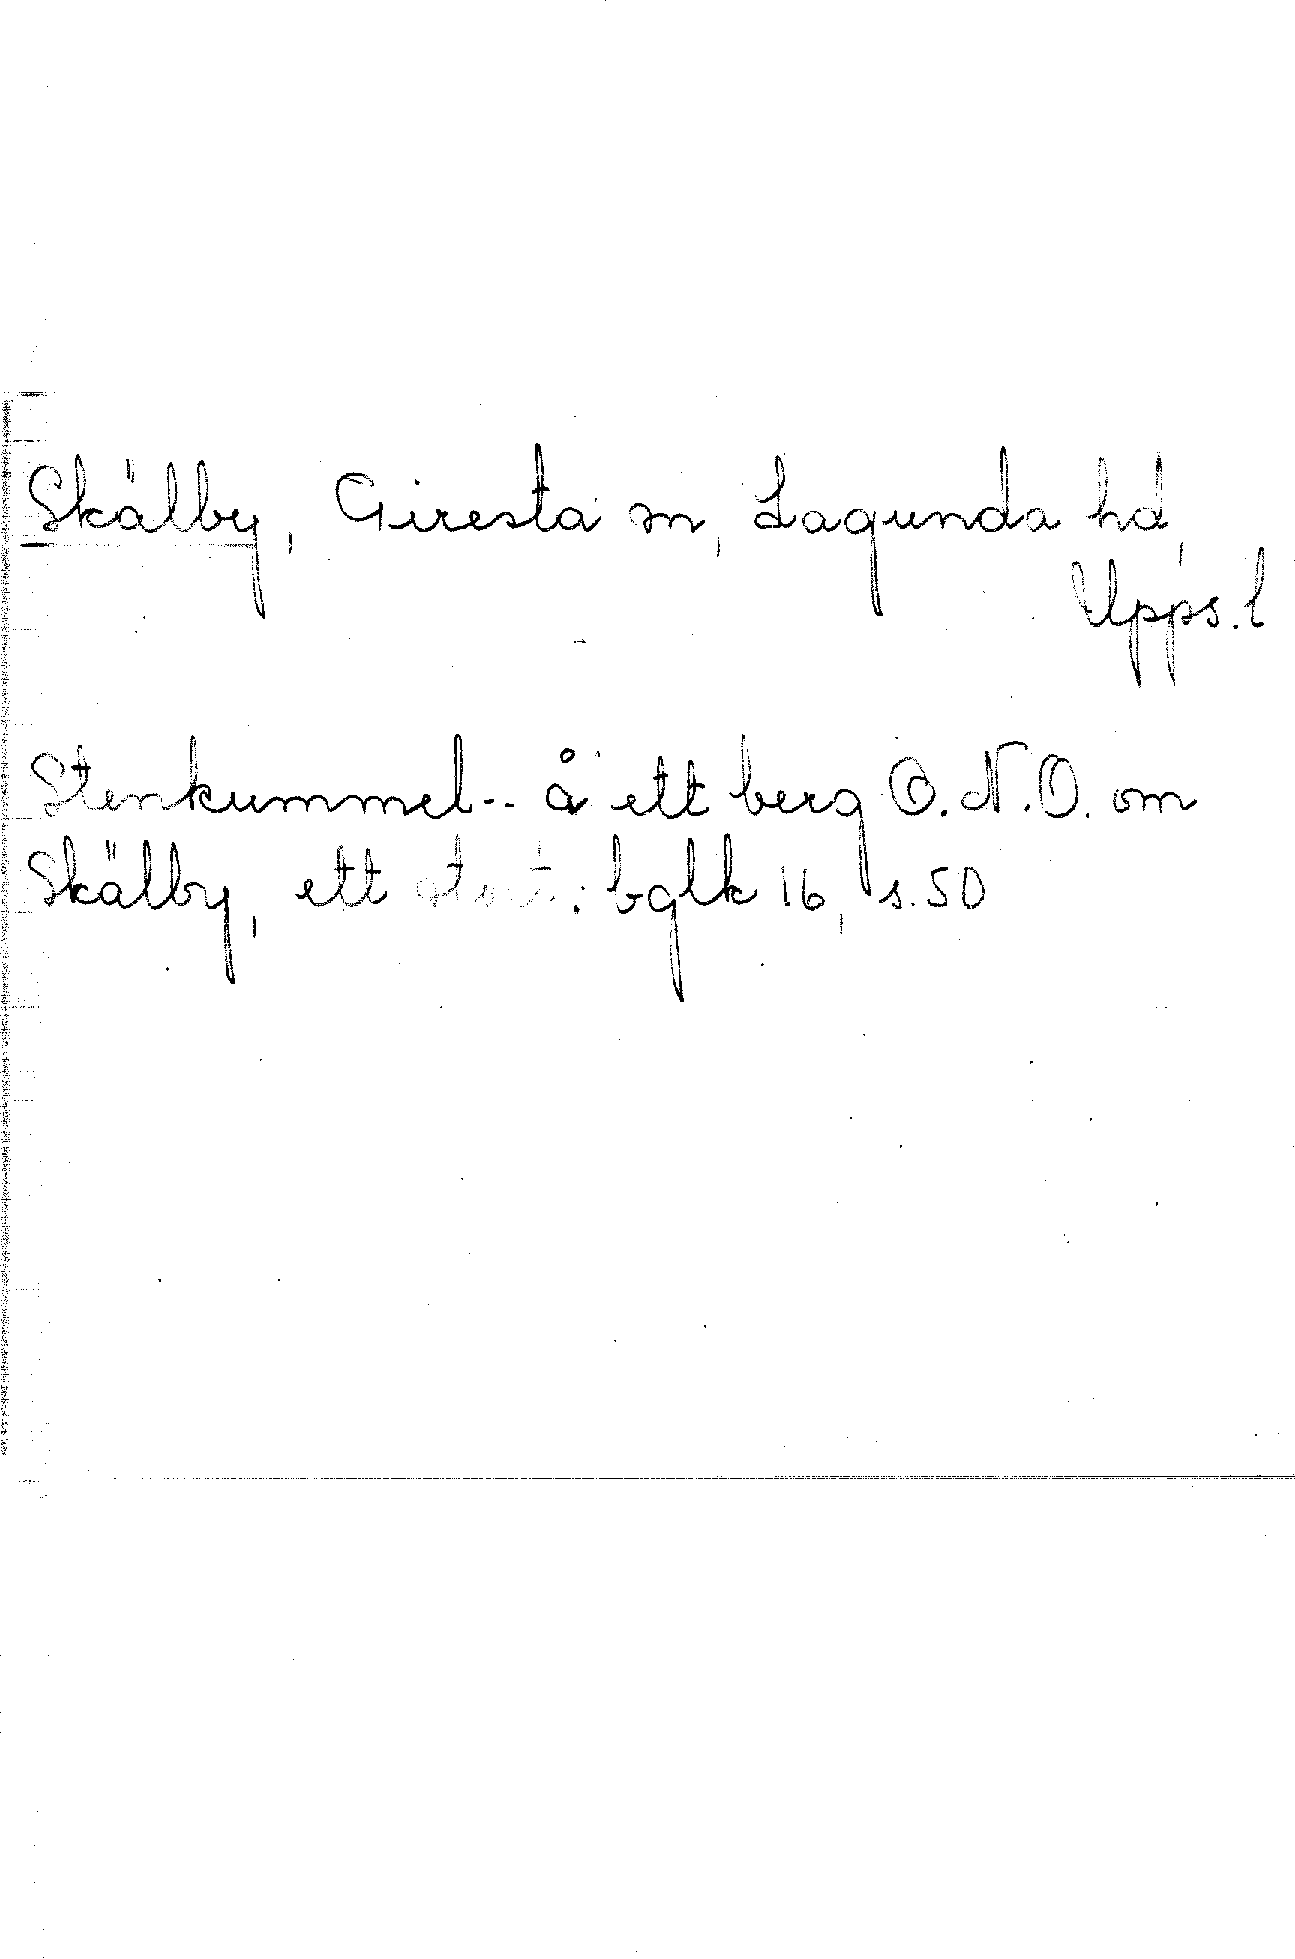 Skälby, Giresta sn, Lagunda hd,
Upps. l
Stenkummel-- å ett berg O.N.O. om
Skälby, ett stort: bglk 16, s. 50